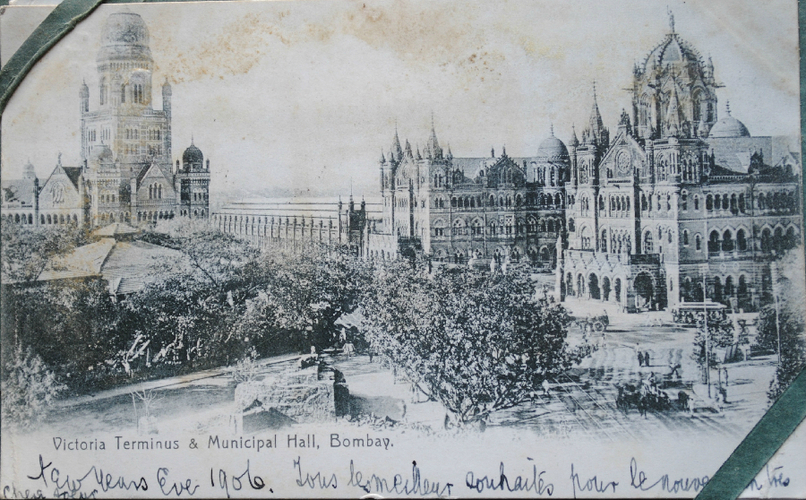 Victoria Terminus & Municipal Hall, Bombay.
New Years Eve 1906. Tous les meilleur souhaités pour le nouve